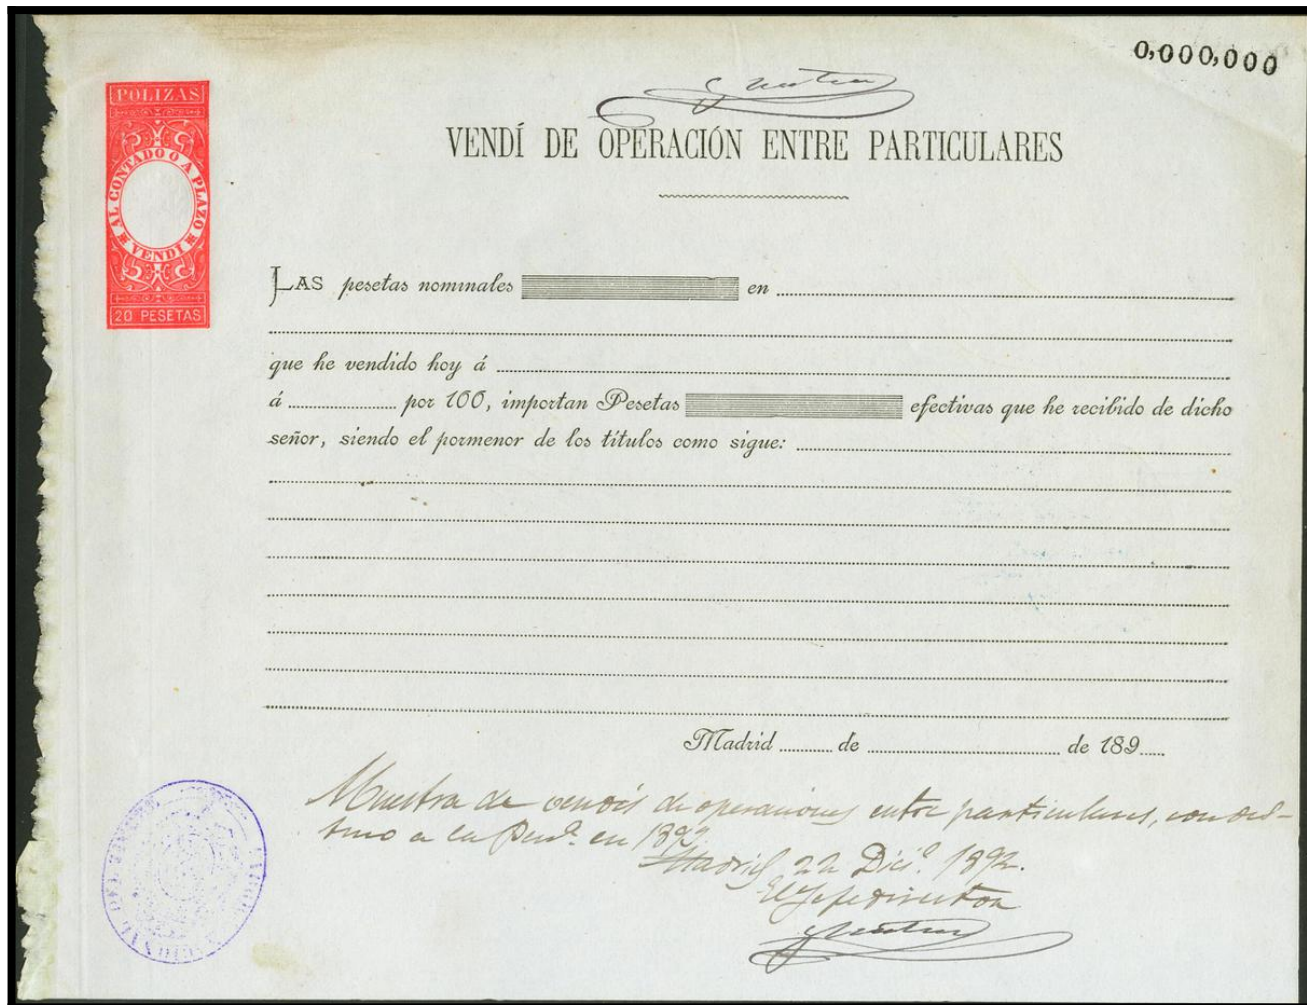 0,000,000
POLIZAS
AL CONTADO O A PLAZO
VENDI
20 PESETAS
VENDÍ DE OPERACIÓN ENTRE PARTICULARES
LAS pesetas nominales en
que he vendido hoy á
á por 100, importan Pesetas efectivas que he recibido de dicho
señor, siendo el pormenor de los títulos como sigue:
Madrid de de 189
Muestra de vendís de operaciones entre particulares, con des-
tino a la en 1892
Madrid 22 Dici.e 1892.
El Jefe director